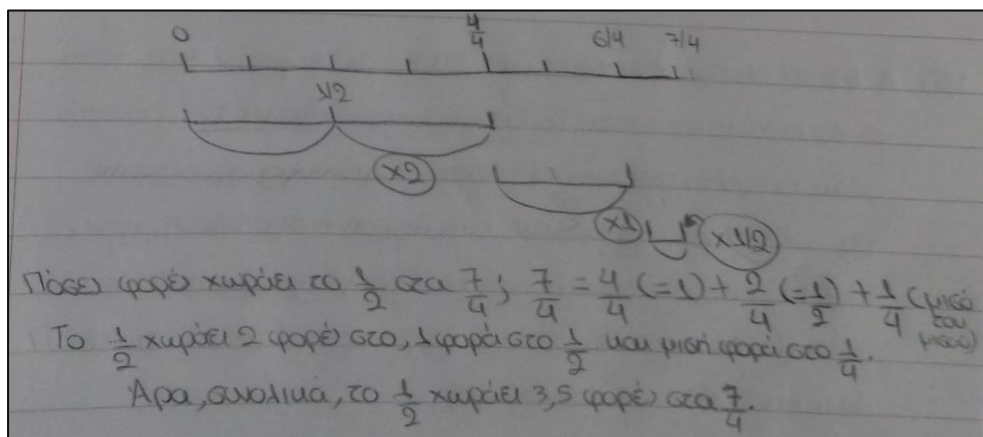 0 4/4 6/4 7/4
1/2
×2
×1 ×1/2
Πόσες φορές χωράει το 1/2 στα 7/4; 7/4 = 4/4 (=1) + 2/4 (=1/2) + 1/4 (μισό του μισού)
Το 1/2 χωράει 2 φορές στο, 1 φορά στο 1/2 και μισή φορά στο 1/4.
Άρα, συνολικά, το 1/2 χωράει 3,5 φορές στα 7/4.